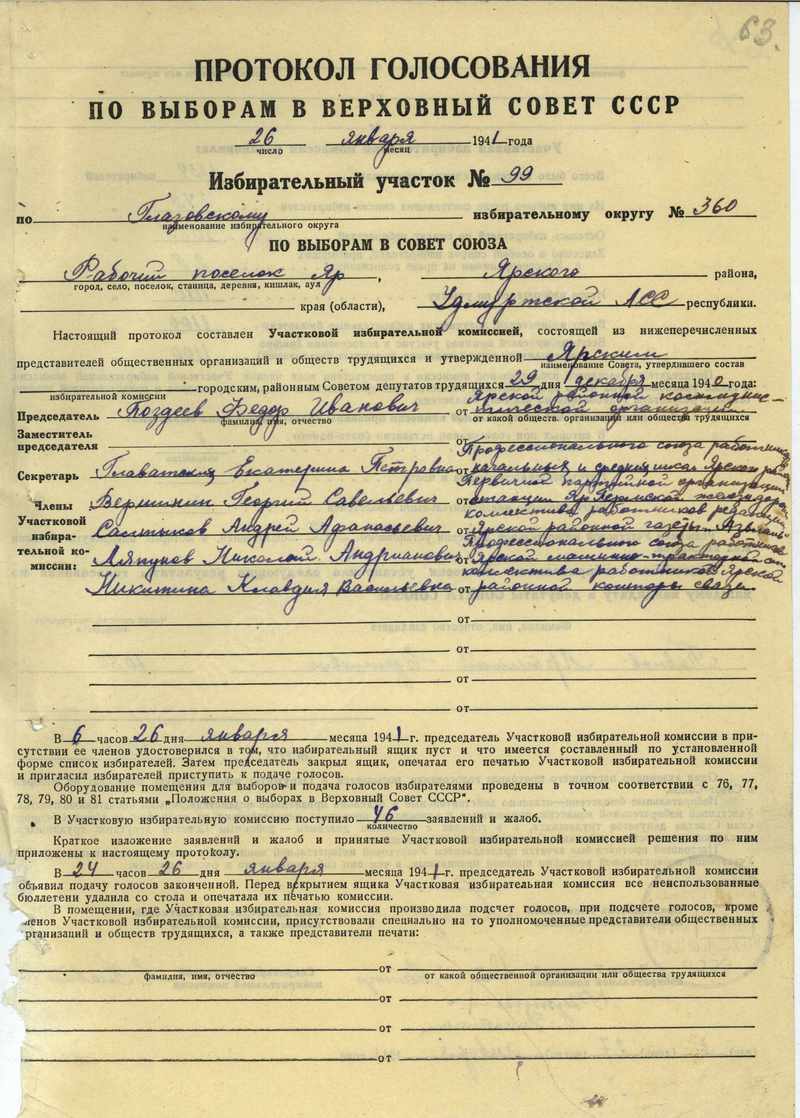 63.
ПРОТОКОЛ ГОЛОСОВАНИЯ
ПО ВЫБОРАМ В ВЕРХОВНЫЙ СОВЕТ СССР
26 января 1941 года
число месяц
Избирательный участок № 99
по Глазовскому избирательному округу № 360
наименование избирательного округа
ПО ВЫБОРАМ В СОВЕТ СОЮЗА
Рабочий поселок Яр, Ярского района,
город, село, поселок, станица, деревня, кишлак, аул
края (области), Удмуртской АСС республики.
Настоящий протокол составлен Участковой избирательной комиссией, состоящей из нижеперечисленных
представителей общественных организаций и обществ трудящихся и утвержденной Ярским
наименование Совета, утвердившего состав
городским, районным Советом депутатов трудящихся 29 дня декабря месяца 1940 года:
избирательной комиссии
Ярской районной коммунис-
Председатель Поздеев Федор Иванович от тической организации
фамилия, имя, отчество от какой обществ. организации или общества трудящихся
Заместитель
председателя от
Профессионального союза работников
Секретарь Главатских Екатерина Петровна от начальных и средних школ Ярского
Первичной партийной организации
Члены Вершинин Георгий Савельевич от станции Яр Пермской
коллектива работников редакции
Участковой Салтыков Андрей Афанасьевич от Ярской районной газеты
избира-
Профессионального союза работников
тельной ко- Ляпунов Николай Андрианович от Ярской машинно-тракторной
миссии:
коллектива работников Ярской
Никитина Клавдия Васильевна от районной конторы связи
от
от
от
от
В 6 часов 26 дня января месяца 1941 г. председатель Участковой избирательной комиссии в при-
сутствии ее членов удостоверился в том, что избирательный ящик пуст и что имеется составленный по установленной
форме список избирателей. Затем председатель закрыл ящик, опечатал его печатью Участковой избирательной комиссии
и пригласил избирателей приступить к подаче голосов.
Оборудование помещения для выборов и подача голосов избирателями проведены в точном соответствии с 76, 77,
78, 79, 80 и 81 статьями „Положения о выборах в Верховный Совет СССР“.
В Участковую избирательную комиссию поступило 46 заявлений и жалоб.
количество
Краткое изложение заявлений и жалоб и принятые Участковой избирательной комиссией решения по ним
приложены к настоящему протоколу.
В 24 часов 26 дня января месяца 1941 г. председатель Участковой избирательной комиссии
объявил подачу голосов законченной. Перед вскрытием ящика Участковая избирательная комиссия все неиспользованные
бюллетени удалила со стола и опечатала их печатью комиссии.
В помещении, где Участковая избирательная комиссия производила подсчет голосов, при подсчете голосов, кроме
членов Участковой избирательной комиссии, присутствовали специально на то уполномоченные представители общественных
организаций и обществ трудящихся, а также представители печати:
от
фамилия, имя, отчество от какой общественной организации или общества трудящихся
от
от
от